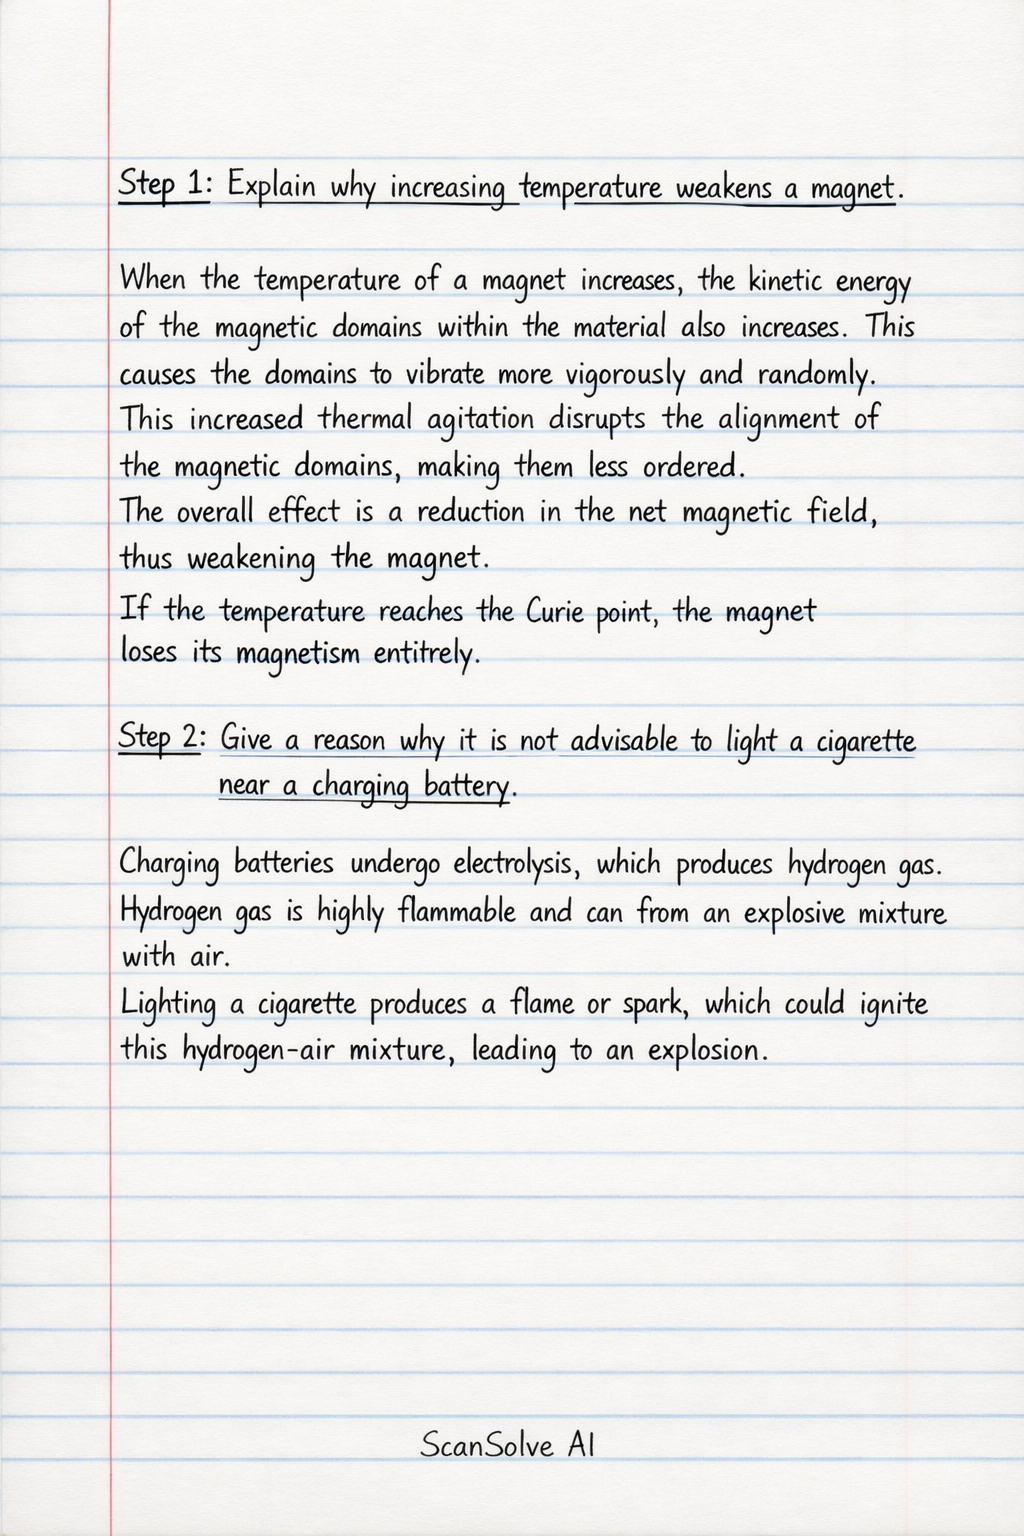 Step 1: Explain why increasing temperature weakens a magnet.
When the temperature of a magnet increases, the kinetic energy
of the magnetic domains within the material also increases. This
causes the domains to vibrate more vigorously and randomly.
This increased thermal agitation disrupts the alignment of
the magnetic domains, making them less ordered.
The overall effect is a reduction in the net magnetic field,
thus weakening the magnet.
If the temperature reaches the Curie point, the magnet
loses its magnetism entitrely.
Step 2: Give a reason why it is not advisable to light a cigarette
near a charging battery.
Charging batteries undergo electrolysis, which produces hydrogen gas.
Hydrogen gas is highly flammable and can from an explosive mixture
with air.
Lighting a cigarette produces a flame or spark, which could ignite
this hydrogen-air mixture, leading to an explosion.
ScanSolve AI